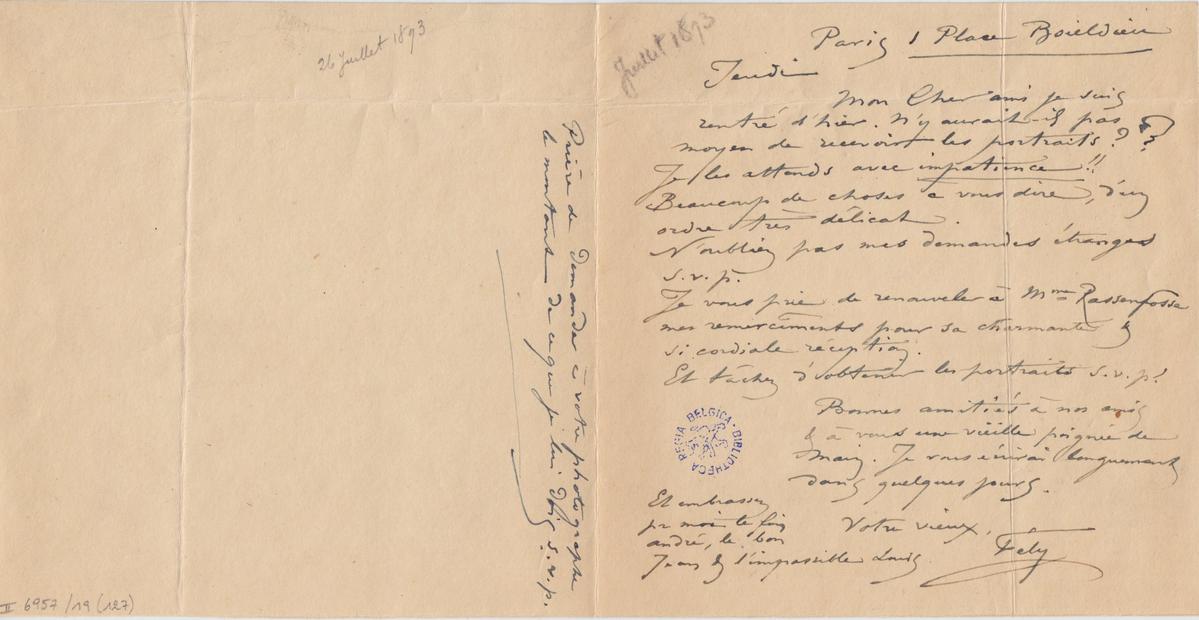 26 Juillet 1893
Juillet 1893
Paris 1 Place Boieldieu
Jeudi
Mon Cher ami je suis
rentré d'hier. N'y aurait-il pas
moyen de recevoir les portraits ? ?
Je les attends avec impatience !!
Beaucoup de choses à vous dire, d'un
ordre très délicat.
N'oubliez pas mes demandes étranges
s.v.p.
Je vous prie de renouveler à Mme Rassenfosse
mes remerciments pour sa charmante &
si cordiale réception.
Et tâchez d'obtenir les portraits s.v.p!
Bonnes amitiés à nos amis
& à vous une vieille poignée de
main. Je vous écrirai longuement
dans quelques jours.
Votre vieux,
Fély
Et embrassez
pr moi le fin
andré, le bon
Jean & l'impassible Louis
Prière de demander à votre photographe
le montant de ce que je lui dois s.v.p.
BIBLIOTHECA REGIA BELGICA
II 6957/19 (127)